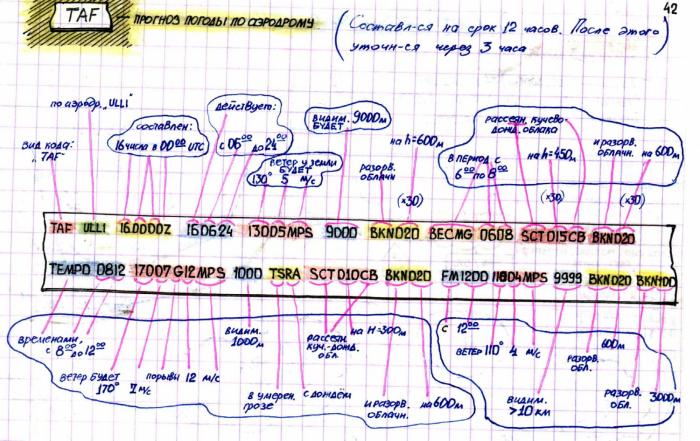 42
TAF - ПРОГНОЗ ПОГОДЫ ПО АЭРОДРОМУ
(Составл-ся на срок 12 часов. После этого
уточн-ся через 3 часа)
вид кода:
„TAF"
по аэродр. „ULLI"
составлен:
16 числа в 00⁰⁰ UTC
действует:
с 06⁰⁰ до 24⁰⁰
ветер у земли
БУДЕТ
130° 5 м/с
видим. 9000м
БУДЕТ
РАЗОРВ.
ОБЛАЧН
на h=600м
(×30)
В ПЕРИОД с
6⁰⁰ по 8⁰⁰
РАССЕЯН. КУЧЕВО-
ДОЖД. ОБЛАКА
на h=450м
(×30)
и РАЗОРВ.
ОБЛАЧН. на 600м
(×30)
TAF ULLI 160000Z 160624 13005MPS 9000 BKN020 BECMG 0608 SCT015CB BKN020
TEMPO 0812 17007G12MPS 1000 TSRA SCT010CB BKN020 FM1200 11004MPS 9999 BKN020 BKN100
временами,
с 8⁰⁰ до 12⁰⁰
ветер будет
170° 7 м/с
порывы 12 м/с
видим.
1000м
в умерен.
грозе
с дождём
рассеян
куч.-дожд.
обл.
на H=300м
и РАЗОРВ.
ОБЛАЧН.
на 600м
с 12⁰⁰
ВЕТЕР 110° 4 м/с
видим.
>10 км
РАЗОРВ.
ОБЛ.
600м
РАЗОРВ.
ОБЛ.
3000м